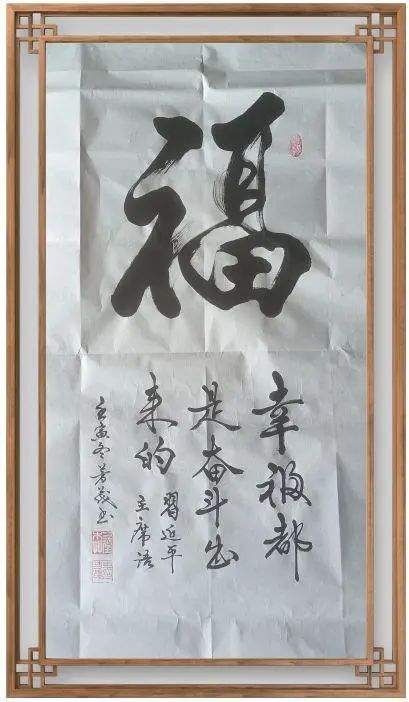 福
幸福都
是奋斗出
来的
習近平
主席语
壬寅冬芳茂书